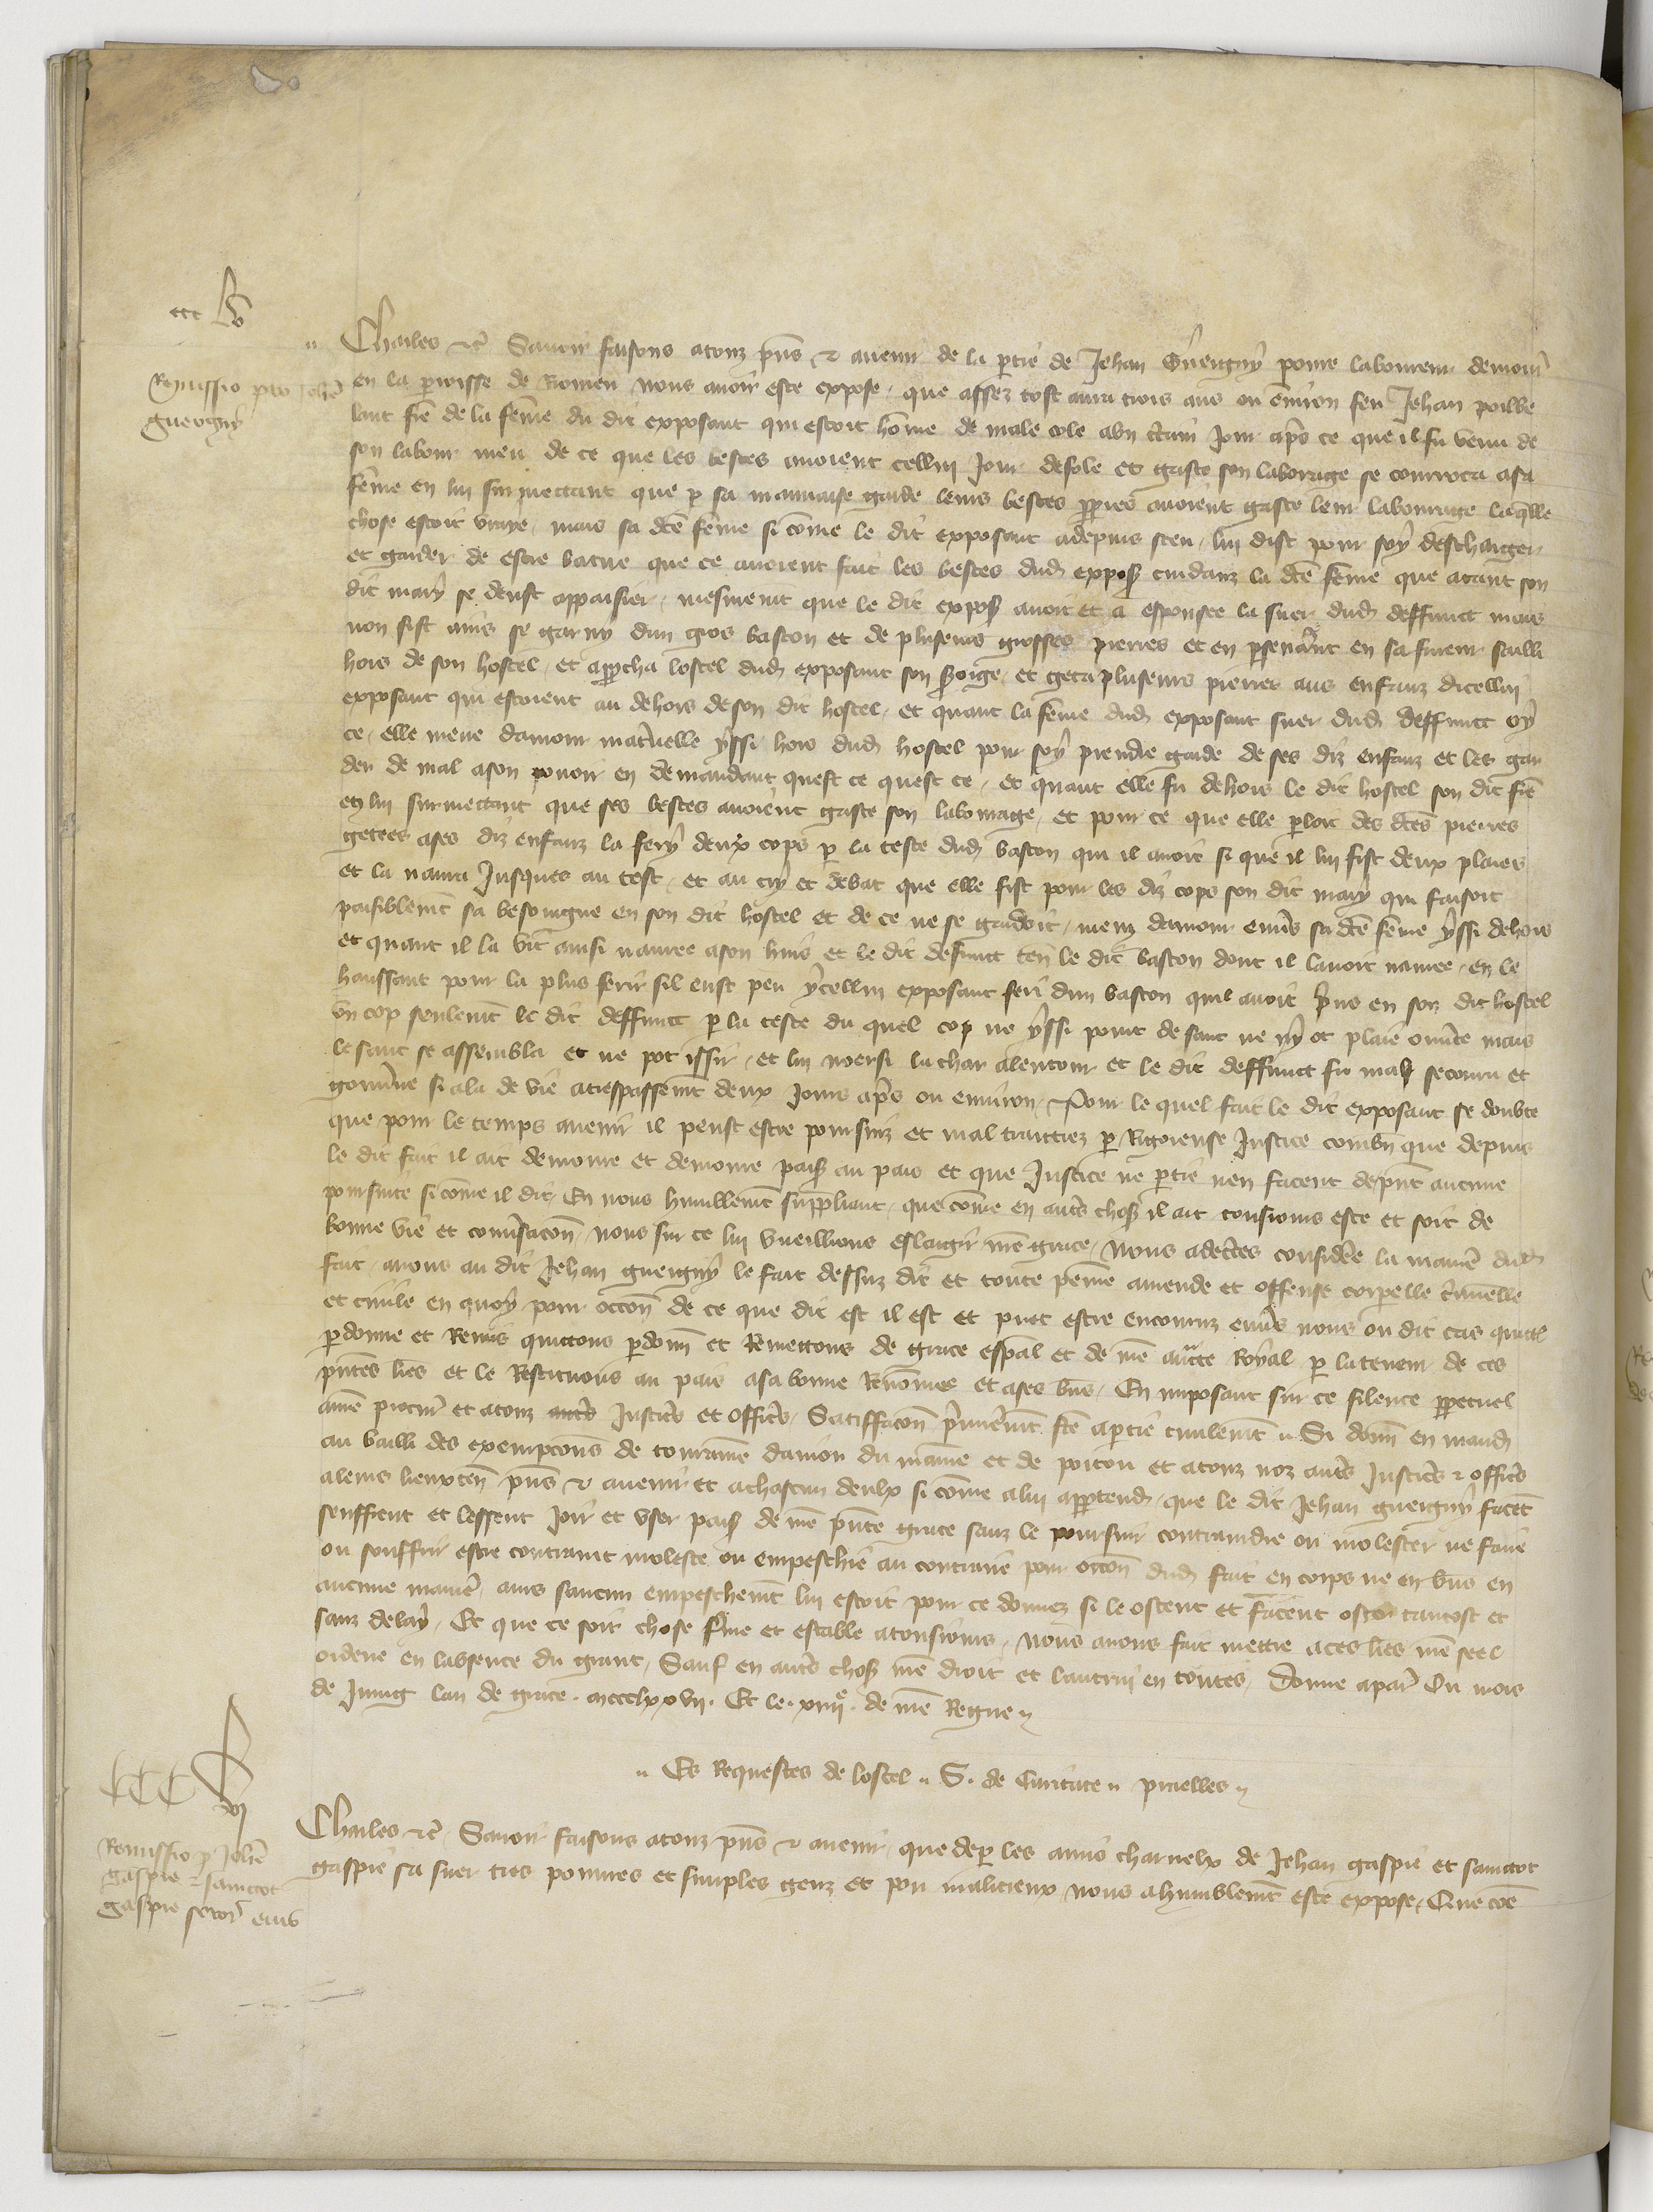 Charles etc Savoir faisons a touz pns et avenir de la ptie de Jehan Guergny povre laboureur demour
Remissio pro Johe en la proisse de Riomen nous avoir este expose que assez tost aura trois ans ou environ feu Jehan poille
guergny lant fre de la feme du dit exposant qui estoit home de male cole a un ctain jour aps ce que il fu venu de
son labour meu de ce que les bestes avoient cellui jour defole et gaste son laborage se courouca a sa
feme en lui surmettant que p sa mauvaise garde leurs bestes ppres avoient gaste leur labourage laqlle
chose estoit vraye mais sa dce feme si come le dit exposant a depuis sceu lui dist pour soy descharger
et garder de estre batue que ce avoient fait les bestes dud expos cuidanz la dce feme que atant son
dit mary se deust appaisier mesmemt que le dit expos avoit et a espousee la suer dud deffunct mais
non fist ains se garny dun gros baston et de pluseurs grosses pierres et en psevant en sa fureur sailli
hors de son hostel et approcha lostel dud exposant son soroige et geta pluseurs pierres aus enfanz dicellui
exposant qui estoient au dehors de son dit hostel et quant la feme dud exposant suer dud deffunct oy
ce elle meue damour matnelle yssi hors dud hostel pour soy prendre garde de ses diz enfanz et les gar
der de mal a son povoir en demandant quest ce quest ce et quant elle fu dehors le dit hostel son dit fre
en lui surmettant que ses bestes avoient gaste son labourage et pour ce que elle ploit des dces pierres
getees a ses diz enfanz la fery deux cops p la teste dud baston qui il avoit si que il lui fist deux plaies
et la navra jusques au test et au cry et debat que elle fist pour les diz cops son dit mary qui faisoit
paisiblemt sa besoingne en son dit hostel et de ce ne se gardoit meuz damour envs sa dce feme yssi dehors
et quant il la vit ainsi navree a son huis et le dit defunct ten le dit baston dont il lavoit navree en le
haussant pour la plus ferir sil eust peu ycellui exposant feri dun baston quil avoit pns en son dit hostel
un cop seulemt le dit deffunct p la teste du quel cop ne yssi point de sanc ne ny ot plaie ouvte mais
le sanc se assembla et ne pot issir et lui noersi la char alentour et le dit deffunct fu mal secouru et
gouvne si ala de vie a trespassemt deux jours aps ou environ Pour le quel fait le dit exposant se doubte
que pour le temps avenir il peust estre poursuiz et mal traittiez p rigoreuse justice combn que depuis
le dit fait il ait demoure et demoure pais au pais et que justice ne ptie nen facent depnt aucune
poursuite si come il dit En nous humblemt suppliant que come en auts choses il ait tousjours este et soit de
bonne vie et convsacon nous sur ce lui vueillions eslargir nre grace Nous adectes consider la maniere dud
fait avons au dit Jehan guergny le fait dessuz dit et toute peine amende et offense corpelle cminelle
et civile en quoy pour occon de ce que dit est il est et puet estre encouruz envs nous ou dit cas quicte
pdonne et remis quictons pdonn et remettons de grace espal et de nre aucte royal p la teneur de ces
pntes lres et le restituons au pais a sa bonne renommee et a ses bns En imposant sur ce silence ppetuel
a nre procur et a touz justics et offics Satisfacon pmieremt fce a ptie civilemt Si donn en mand
au bailli des exempcons de touraine danjou du maine et de poitou et a touz noz auts justics et offics
a leurs lieuxten pns et avenir et a chascun deulx si come a lui apptend que le dit Jehan guergny facent
seuffrent et lessent joir et user pais de nre pnte grace sanz le poursuir contraindre ou molester ne faire
ou souffrir estre contraint moleste ou empeschie au contraire pour occon dud fait en corps ne en bns en
aucune maniere ains saucun empeschemt lui estoit pour ce donnez si le ostent et facent oster tantost et
sanz delay Et que ce soit chose fme et estable a tousjours nous avons fait mettre a ces lres nre seel
ordene en labsence du grant Sauf en auts choses nre droit et lautrui en toutes Donne a par Ou mois
de juing lan de grace mccclxxvii Et le xiiiie de nre Regne
Es Requestes de lostel S. de Caritate praelles
Charles etc Savoir faisons a touz pns et avenir que de p les amis charnelx de Jehan gaspie et sainctot
Remissio p Johe gaspie sainctot gaspie sa suer tres povures et simples genz et pou malicieux nous a humblemt este expose Que coe
gaspie soror eius